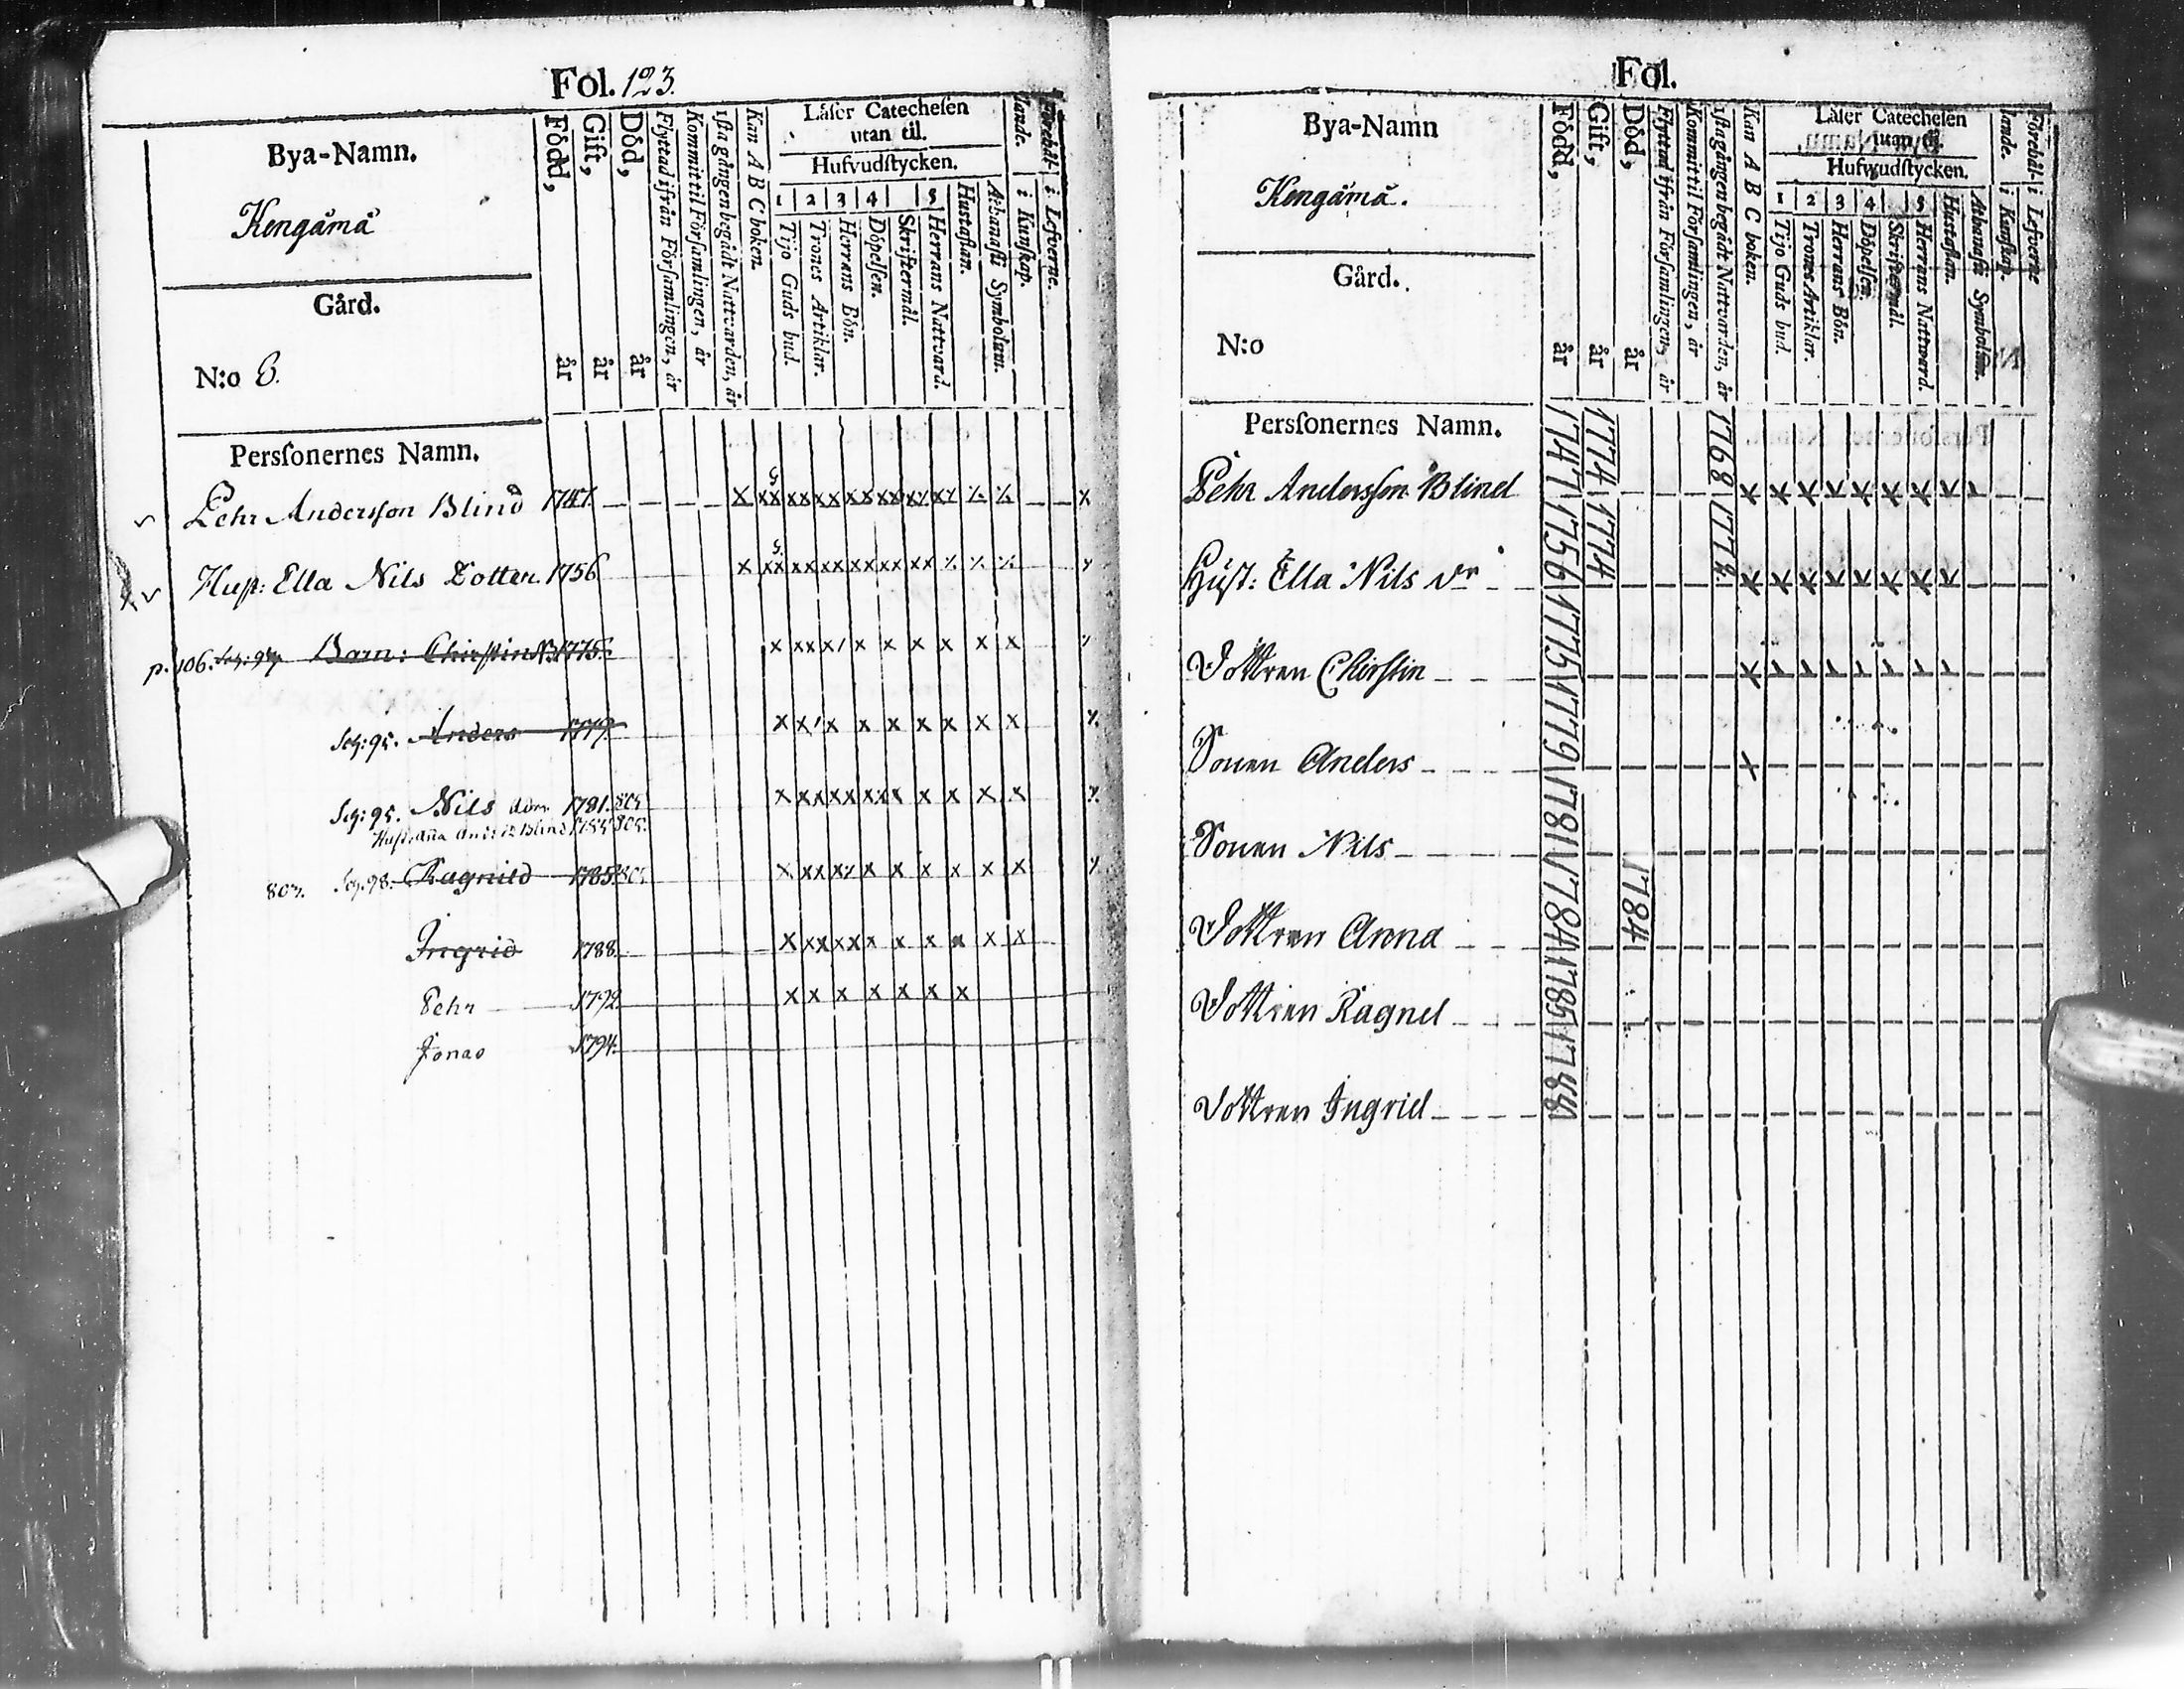 Fol. 123.
Bya-Namn.
Kengämä
Gård.
N:o 6.
Persſonernes Namn.
Född, år
Gift, år
Död, år
Flyttad ifrån Förſamlingen, år
Kommit til Förſamlingen, år
1ſta gången begådt Nattvarden, år
Kan A B C boken.
Läſer Catecheſen
utan til.
Hufvudſtycken.
1 2 3 4 5
Tijo Guds bud.
Trones Artiklar.
Herrans Bön.
Döpelſen.
Skriftermål.
Herrans Nattvard.
Huſtaflan.
Athanaſii Symbolum.
Förehål-
lande.
i Kunſkap.
i Lefverne.
Pehr Andersſon Blind 1747. — — — — x xx xx xx xx xx
Huſt: Ella Nils Dotter. 1756 x xx xx xx xx xx xx
p. 106. Barn: Chirſtin 1775.
Sch: 95. Anders 1779
Sch: 95. Nils 1781. 805
Huſt. Ana And: Dr Blind
807. Sch. 98. Ragnild 1785. 805
Ingrid 1788.
Pehr 1792 x x x x x x x
Jonas 1794.
Fol.
Bya-Namn
Kengämä.
Gård.
N:o
Persſonernes Namn.
Född, år
Gift, år
Död, år
Flyttad ifrån Förſamlingen, år
Kommit til Förſamlingen, år
1ſta gången begådt Nattvarden, år
Kan A B C boken.
Läſer Catecheſen
utan til.
Hufvudſtycken.
1 2 3 4 5
Tijo Guds bud.
Trones Artiklar.
Herrans Bön.
Döpelſen.
Skriftermål.
Herrans Nattvard.
Huſtaflan.
Athanaſii Symbolum.
Förehål-
lande.
i Kunſkap.
i Lefverne
Pehr Andersſon Blind 1747 1774 1768
Huſt: Ella Nils dr 1756 1774 1772.
Dottren Chirſtin 1775
Sonen Anders 1779
Sonen Nils 1781
Dottren Anna 1784 1784
Dottren Ragnel 1785
Dottren Ingrid 1788